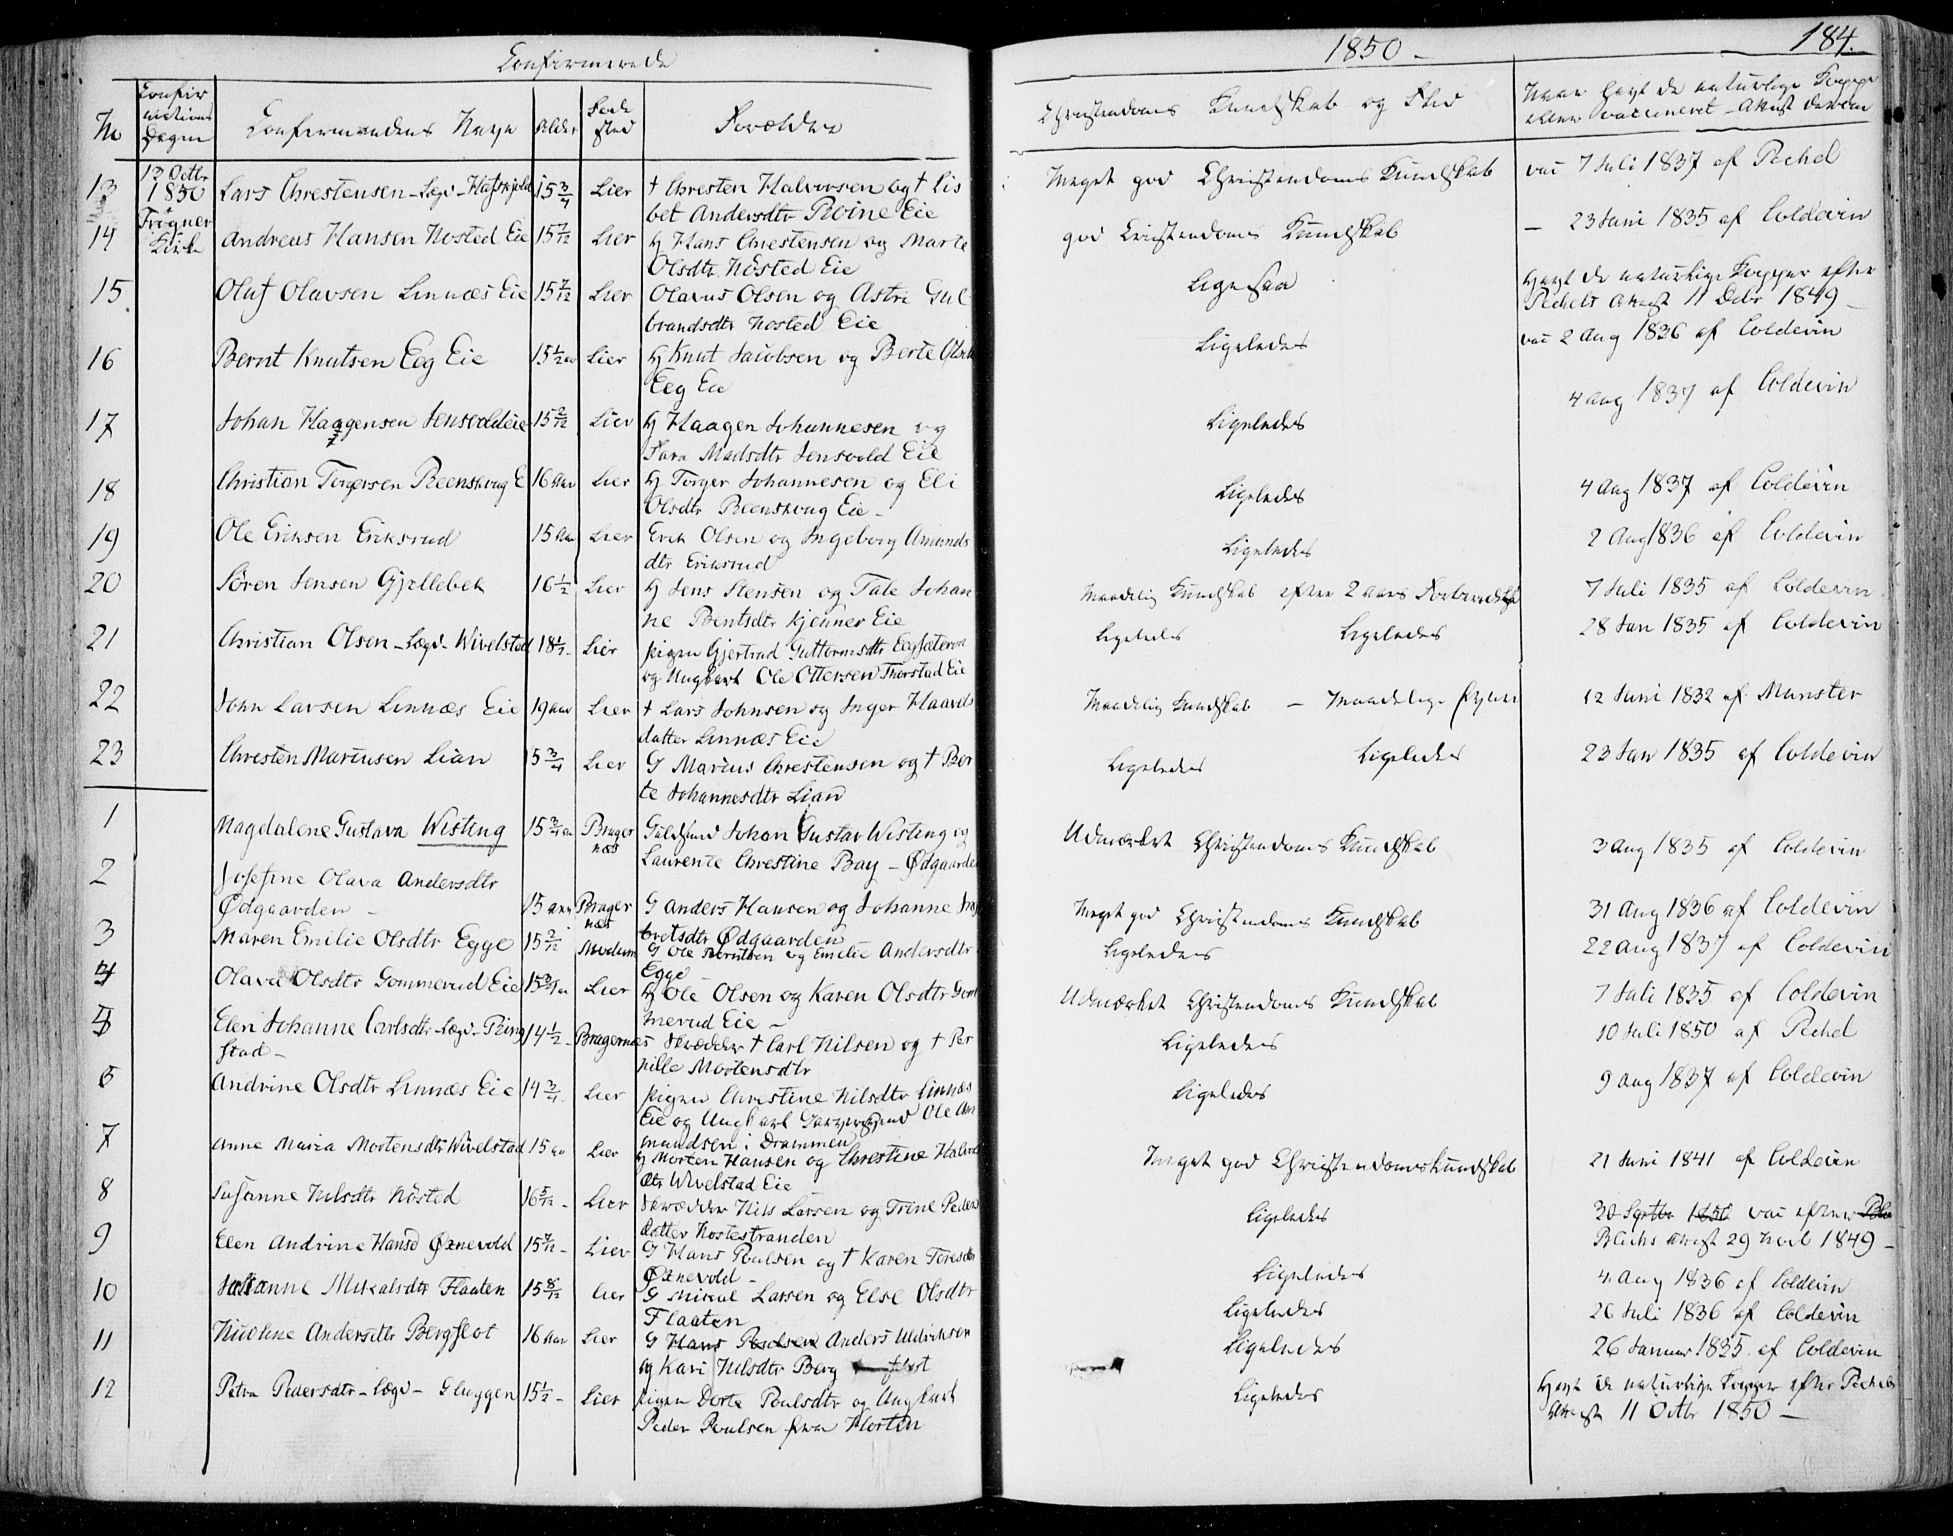 Confirmerede
1850 -
184.
No
Confir
mations
Dagen
Confirmandens Navn
Alder
Føde
sted
Forældre
Christendoms Kundskab og Flid
Naar havt de naturlige Kopper
eller vaccineret - Attest derom
13
13 Octbr
1850
Lars Christensen - Lægd - Hafskjold
15 3/4
Lier
† Christen Halvorsen og † Lis
bet Andersdtr Roine Eie
Meget god Christendoms Kundskab
vac 7 Juli 1837 af Pechel
14
Frogner
Kirke
Andreas Hansen Nøsted Eie
15 7/12
Lier
H Hans Christensen og Marte
Olsdtr Nøsted Eie
god Christendoms Kundskab
- 23 Juni 1835 af Coldevin
15
Olaf Olavsen Linnæs Eie
15 7/12
Lier
Olavus Olsen og Astri Gul
brandsdtr Nøsted Eie
Ligesaa
Havt de naturlige Kopper efter
Pechels Attest 11 Debr 1849 -
16
Bernt Knutsen Eeg Eie
15 1/2 aar
Lier
H Knut Jacobsen og Berte Olsdtr
Eeg Eie
Ligeledes
vac 2 Aug 1836 af Coldevin
17
Johan Haagensen Jensvold Eie
15 2/12
Lier
H Haagen Johannesen og
Sara Madsdtr Jensvold Eie
Ligeledes
4 Aug 1837 af Coldevin
18
Christian Torgersen Reenskoug E
16 Aar
Lier
H Torger Johannesen og Eli
Olsdtr Reenskoug Eie -
Ligeledes
4 Aug 1837 af Coldevin
19
Ole Eriksen Eriksrud
15 Aar
Lier
Erik Olsen og Ingeborg Amunds
dtr Eriksrud
Ligeledes
2 Aug 1836 af Coldevin
20
Søren Jensen Gjellebek
16 1/2
Lier
H Jens Stensen og Tale Johan
ne Berntsdtr Kjenner Eie
Maadelig Kundskab efter 2 aars Forberedelse
7 Juli 1835 af Coldevin
21
Christian Olsen - Lægd - Wivelstad
18 1/2
Lier
pigen Gjertrud Guttormsdtr Eegsæteren
og Ungkarl Ole Ottersen Thorstad Eie
Ligeledes
Ligeledes
28 Jan 1835 af Coldevin
22
John Larsen Linnæs Eie
19 aar
Lier
† Lars Johnsen og Inger Haavels
datter Linnæs Eie
Maadelig Kundskab - Maadelige Evner
12 Juni 1832 af Munster
23
Christen Mariusen Lian
15 3/4
Lier
G Marius Christensen og † Ber
te Johannesdtr Lian
Ligeledes
Ligeledes
23 Jan 1835 af Coldevin
1
Magdalene Gustava Wisting
15 3/4 aar
Brager
næs
Guldsmed Johan Gustav Wisting og
Laurence Christine Bay - Ødgaarden
Udmærket Christendoms Kundskab
3 Aug 1835 af Coldevin
2
Josefine Olava Andersdtr
Ødgaarden -
15 aar
Brager
næs
G Anders Hansen og Johanne Ing
bretsdtr Ødgaarden
Meget god Christendoms Kundskab
31 Aug 1836 af Coldevin
3
Maren Emilie Olsdtr Egge
15 2/12
Modum
G Ole Berntsen og Emilie Andersdtr
Egge
Ligeledes
22 Aug 1837 af Coldevin
4
Olava Olsdtr Gommerud Eie
15 3/4 aar
Lier
H Ole Olsen og Karen Olsdtr Gom
merud Eie -
Udmærket Christendoms Kundskab
7 Juli 1835 af Coldevin
5
Elen Johanne Carlsdtr - Lægd - Ring
stad -
14 1/2 -
Bragernæs
Skrædder † Carl Nilsen og † Per
nille Mortensdtr
Ligeledes
10 Juli 1850 af Pechel
6
Andrine Olsdtr Linnæs Eie
14 3/4
Lier
pigen Christine Nilsdtr Linnæs
Eie og Ungkarl Garversvend Ole Am
mundsen i Drammen
Ligeledes
9 Aug 1837 af Coldevin
7
Anne Maria Mortensdtr Wivelstad
15 aar
Lier
H Morten Hansen og Christine Halvors
dtr Wivelstad Eie
Meget god Christendomskundskab
21 Juni 1841 af Coldevin
8
Susanne Nilsdtr Nøsted
16 5/12 -
Lier
Skrædder Nils Larsen og Trine Peders
datter Nøstestranden
Ligeledes
30 Septbr 1850 vac efter
Blichs Attest 29 Novb 1849 -
9
Elen Andrine Hansd Øxnevold
15 7/12 -
Lier
G Hans Poulsen og † Karen Toresdtr
Øxnevold -
Ligeledes
4 Aug 1836 af Coldevin
10
Johanne Mikalsdtr Flaaten
15 8/12
Lier
G Mikal Larsen og Else Olsdtr
Flaaten
Ligeledes
26 Juli 1836 af Coldevin
11
Nicoline Andersdtr Bergflot
16 Aar
Lier
G Hans Poulsen Anders Uldriksen
og Kari Nilsdtr Berg flot
Ligeledes
26 Januar 1835 af Coldevin
12
Petra Pedersdtr - Lægd - Gluggen
15 1/2 -
Lier
pigen Dorte Poulsdtr og Ungkarl
Peder Poulsen fra Horten
Ligeledes
Havt de naturlige Kopper efter Pechels
Attest 11 Octbr 1850 -